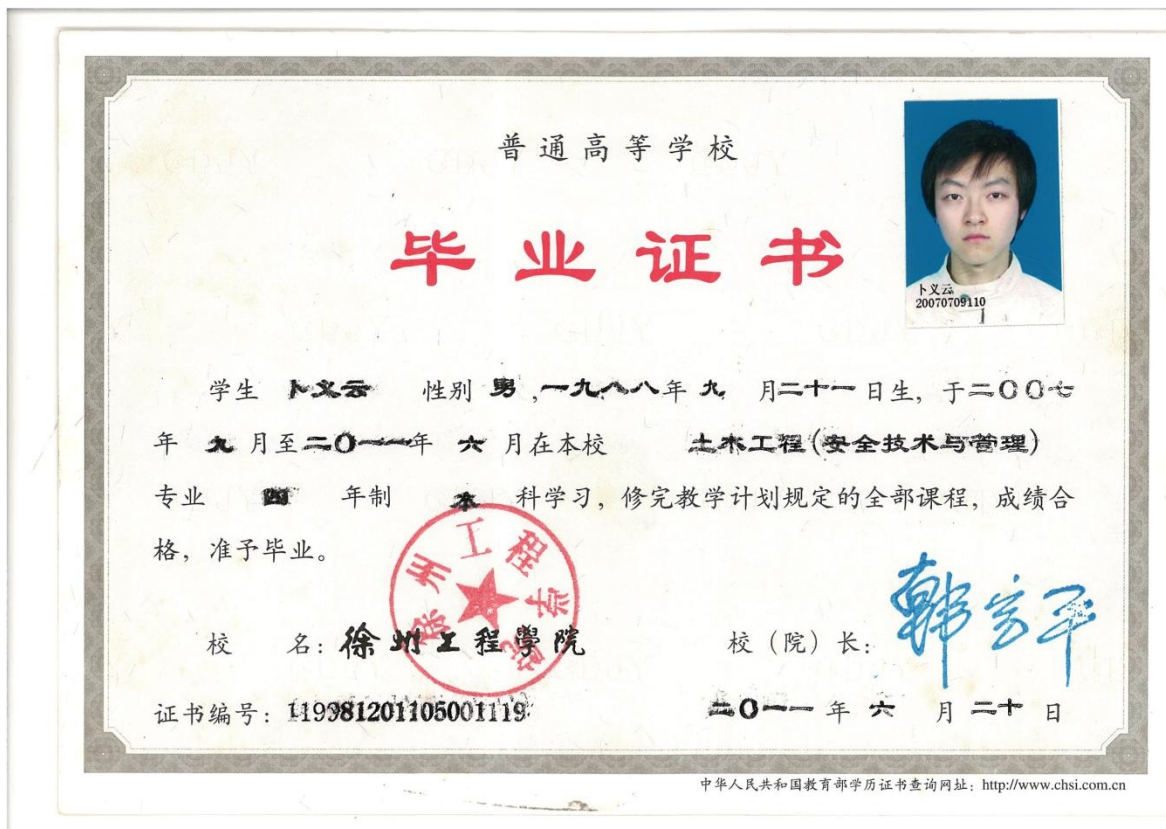 普通高等学校
毕业证书
卜义云
20070709110
学生 卜义云 性别 男,一九八八年 九 月二十一日生，于二〇〇七
年 九 月至二〇一一年 六 月在本校 土木工程(安全技术与管理)
专业 四 年制 本 科学习，修完教学计划规定的全部课程，成绩合
格，准予毕业。
徐州工程学院
校 名：徐州工程學院 校（院）长：
证书编号：119981201105001119 二〇一一 年 六 月 二十 日
中华人民共和国教育部学历证书查询网址：http://www.chsi.com.cn